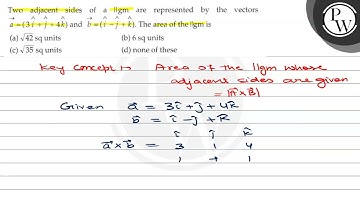 Two adjacent sides of a ||gm are represented by the vectors
a⃗ = (3î + ĵ + 4k̂) and b⃗ = (î − ĵ + k̂). The area of the ||gm is
(a) √42 sq units (b) 6 sq units
(c) √35 sq units (d) none of these
PW
Key concept:- Area of the ||gm whose
adjacent sides are given
= |a⃗×b⃗|
Given a⃗ = 3î+ĵ+4k̂
b⃗ = î-ĵ+k̂
î ĵ k̂
a⃗×b⃗ = 3 1 4
1 -1 1